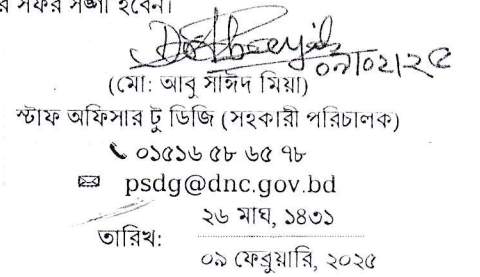 র সফর সঙ্গী হবেন।
০৯/০২/২৫
(মো: আবু সাঈদ মিয়া)
স্টাফ অফিসার টু ডিজি (সহকারী পরিচালক)
০১৫১৬ ৫৮ ৬৫ ৭৮
psdg@dnc.gov.bd
২৬ মাঘ, ১৪৩১
তারিখ:
০৯ ফেব্রুয়ারি, ২০২৫